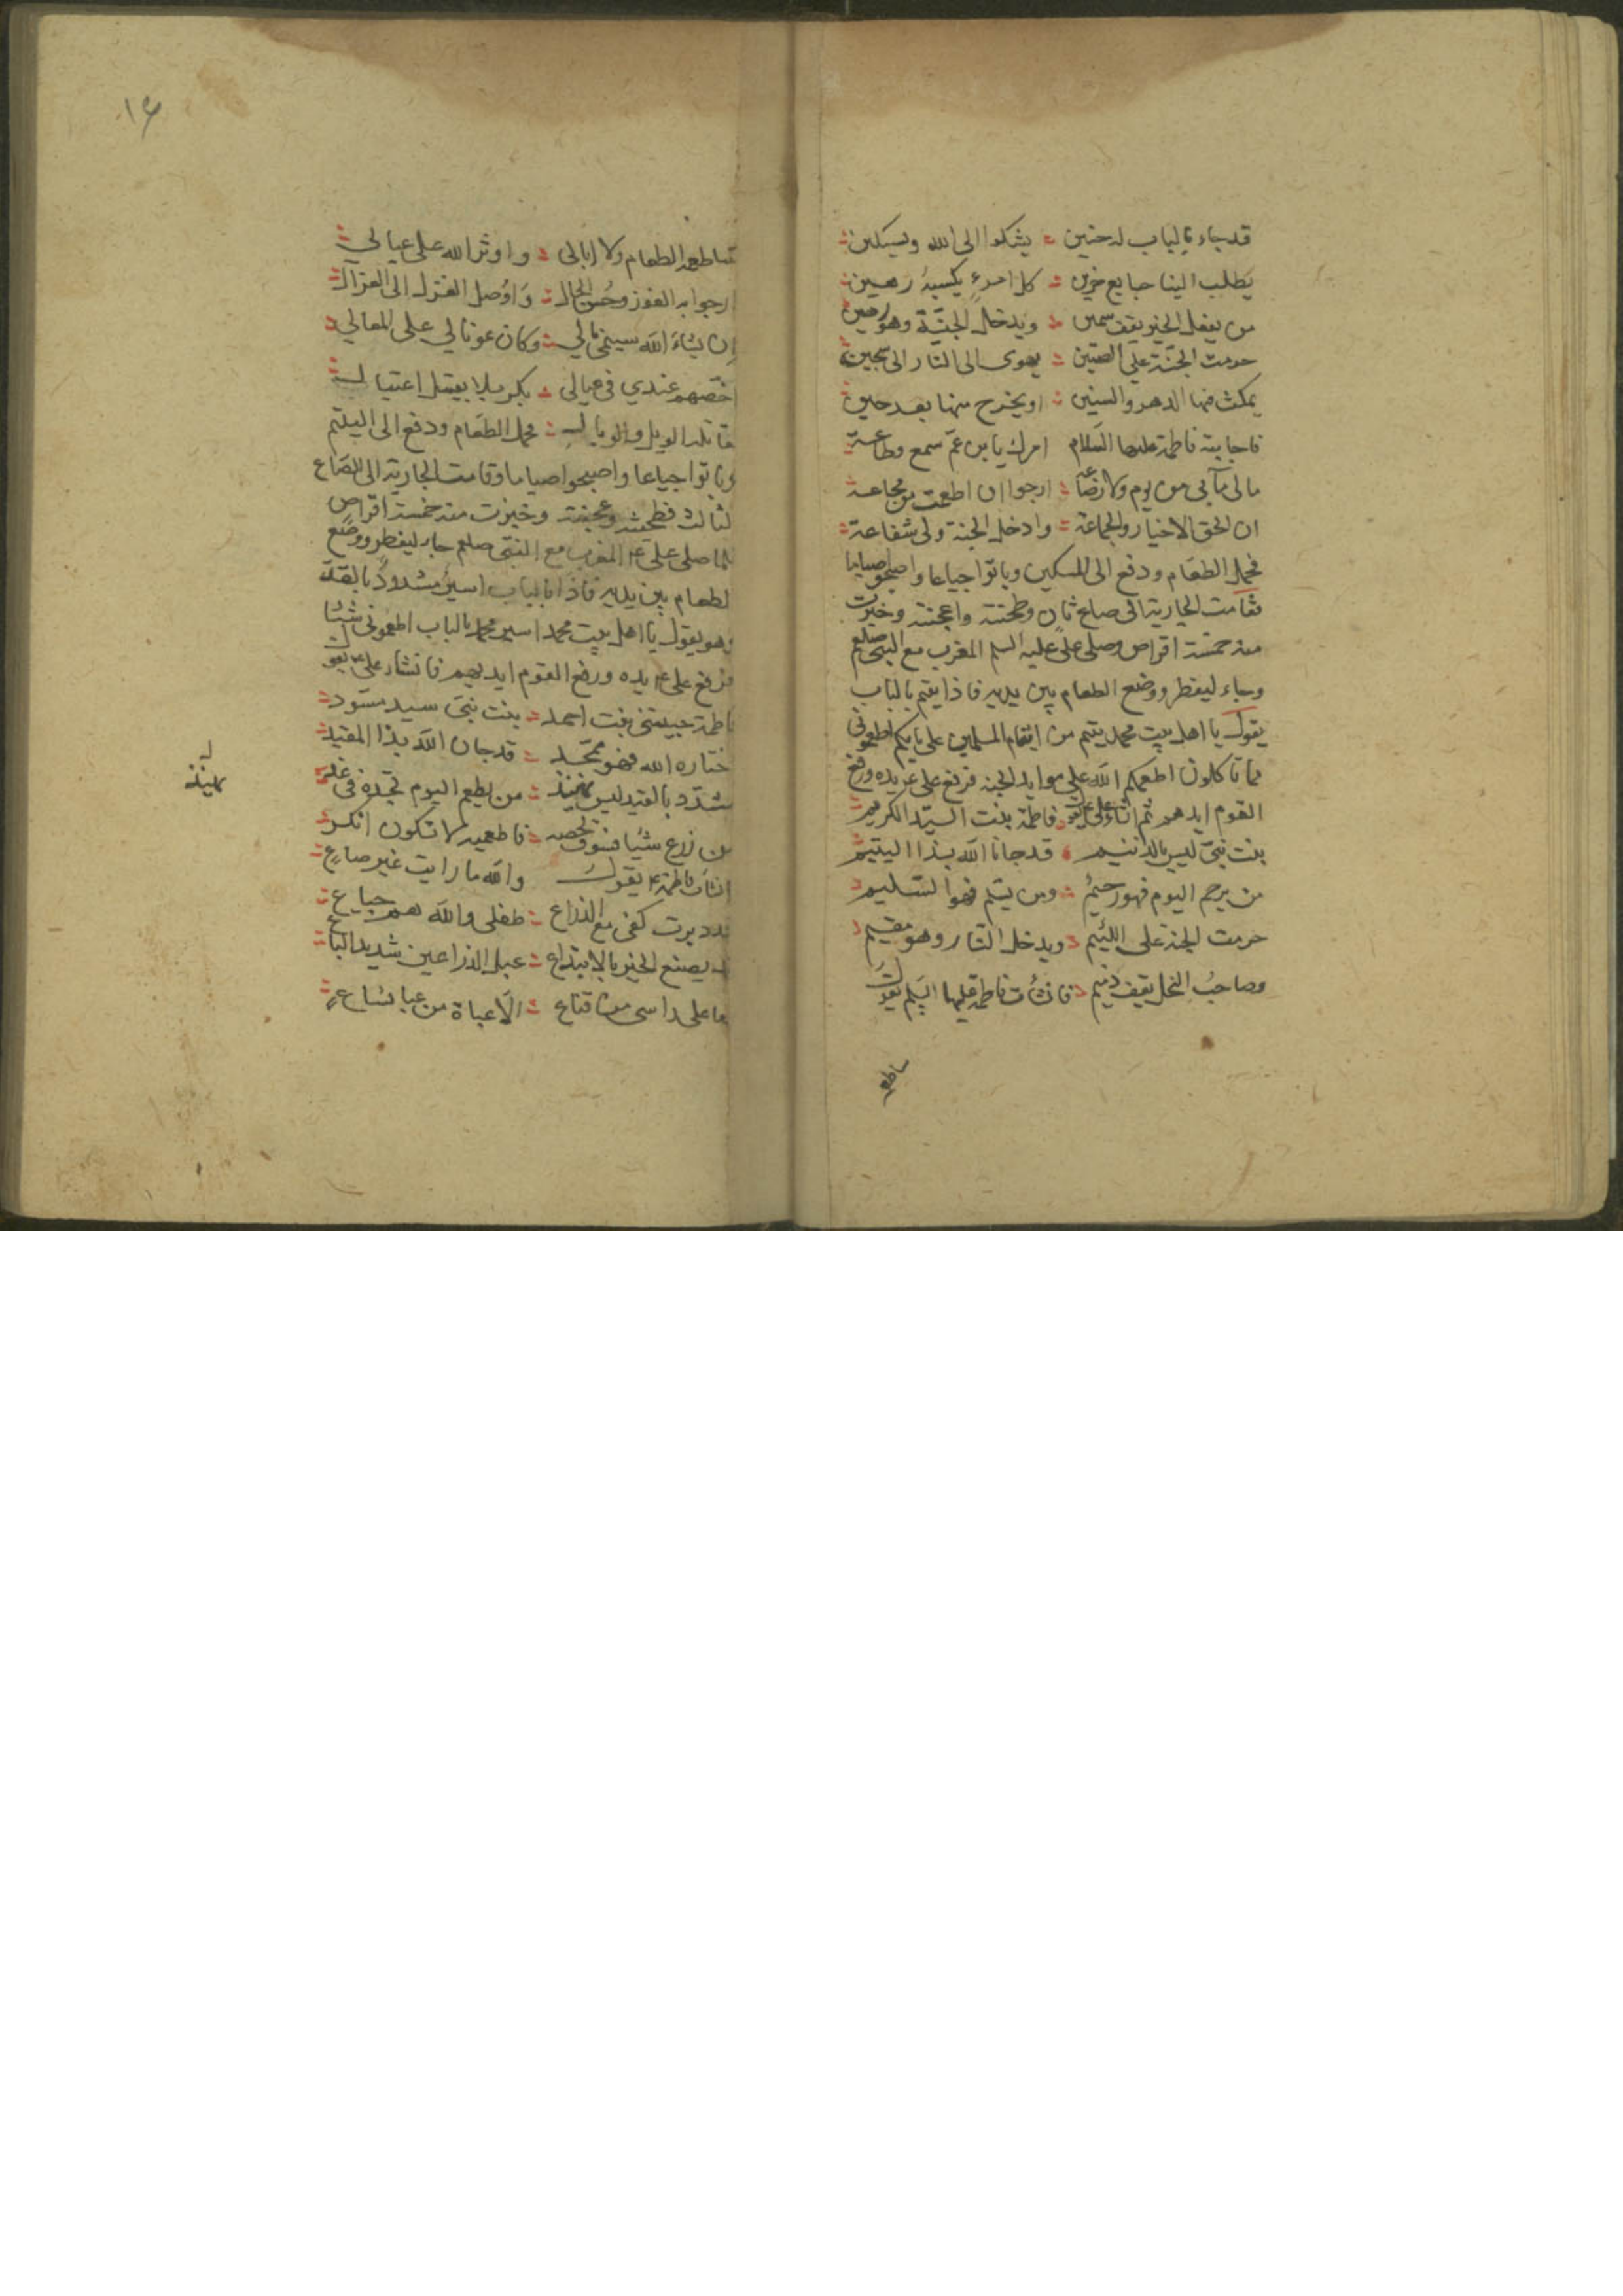 قد جاء بالباب له حنين يشكوا الى الله ويستكين
يطلب الينا جايع حزين كل امرءٍ يكسبهُ رهين
من يفعل الخير يقف سمين ويدخل الجنّة وهو رحين
حرمت الجنّة على الضنين يهوى الى النار الى سجين
يمكث فيها الدهر والسنين او يخرج منها بعد حين
فاجابته فاطمة عليها السّلام امرك يابن عمّ سمع وطاعة
مالى من يوم ولا ارجوا ان اطعمت من مجاعة
ان الحق الاخيار والجماعة وادخل الجنة ولى شفاعة
فحمل الطعام ودفع الى المسكين وباتوا جياعا واصبحوا صياما
فقامت الجارية الى صاع ثانٍ وطحنته واعجنته وخبزت
منه خمسة اقراص وصلى علىّ عليه السلم المغرب مع النبى صلعم
وجاء ليفطر ووضع الطعام بين يديه فاذا يتيم بالباب
يقول يا اهل بيت محمد يتيم من ايتام المسلمين على بابكم اطعمونى
مما تاكلون اطعمكم اللّه على موايد الجنة فرفع على ع يده ورفع
القوم ايدهم ثم انشاء على ع يقول فاطمة بنت السيّد الكريم
بنت نبىّ ليس بالذنيم قد جانا اللّه بذا اليتيم
من يرحم اليوم فهو رحيمُ ومن يسلم فهو السّليم
حرمت الجنة على اللئيم ويدخل النّار وهو مقيم
وصاحبُ البخل يقف ذميم فانشأت فاطمة عليها السّلم تقول
ساطعم
١٤
فساطعمه الطعام ولا ابالى واوثر اللّه على عيالى
ارجوا به الفوز وحُسن الحال وَاوُصل الغزل الى الغزال
اِن يشاءَ اللّه سينمى مالي وكان عونا لي على المعالي
اخصّهم عندي فى عيالى بكربلا بقتل اغتيال
قاتله الويل والوبال فحمل الطعَام ودفع الى اليتيم
وباتوا جياعا واصبحوا صياما وقامت الجارية الى الصّاع
لثالث فطحنته وعجنته وخبزت منه خمسة اقراص
لما صلى على ع المغرب مع النبىّ صلعم جاء ليفطر ووضَع
لطعام بين يديه فاذا بالباب اسيرُ مشدودُ بالقدّ
وهو يقول يا اهل بيت محمد اسير محمد بالباب اطعمونى شيئا
فرفع على ع يده ورفع القوم ايديهم فانشاء على ع يقول
فاطمة حبيبتى بنت احمد بنت نبىّ سيد مسّود
ختاره اللّه فهو محمّد قد جان اللّه بذا المقيد
مشدّد بالقيد ليس من يطعم اليوم يجده فى غد
من زرع شيًا فسوف يحصد فاطعميه لا تكون انكد
انشأت فاطمة ع يقول واللّه ما رايت غير صاعٍ
قد دبرت كفى مع الذراع طفلى واللّه هم جياع
يصنع الخير بالابتداع عبل الذراعين شديد الباع
وما على راسى من قناع الّا عباة من عبا